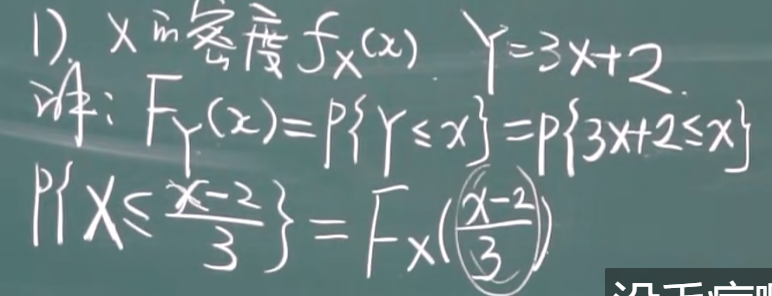 1). X的密度 f_X(x). Y=3X+2.
证: F_Y(x)=P{Y≤x}=P{3X+2≤x}
P{X≤\frac{x-2}{3}}=F_X(\frac{x-2}{3})